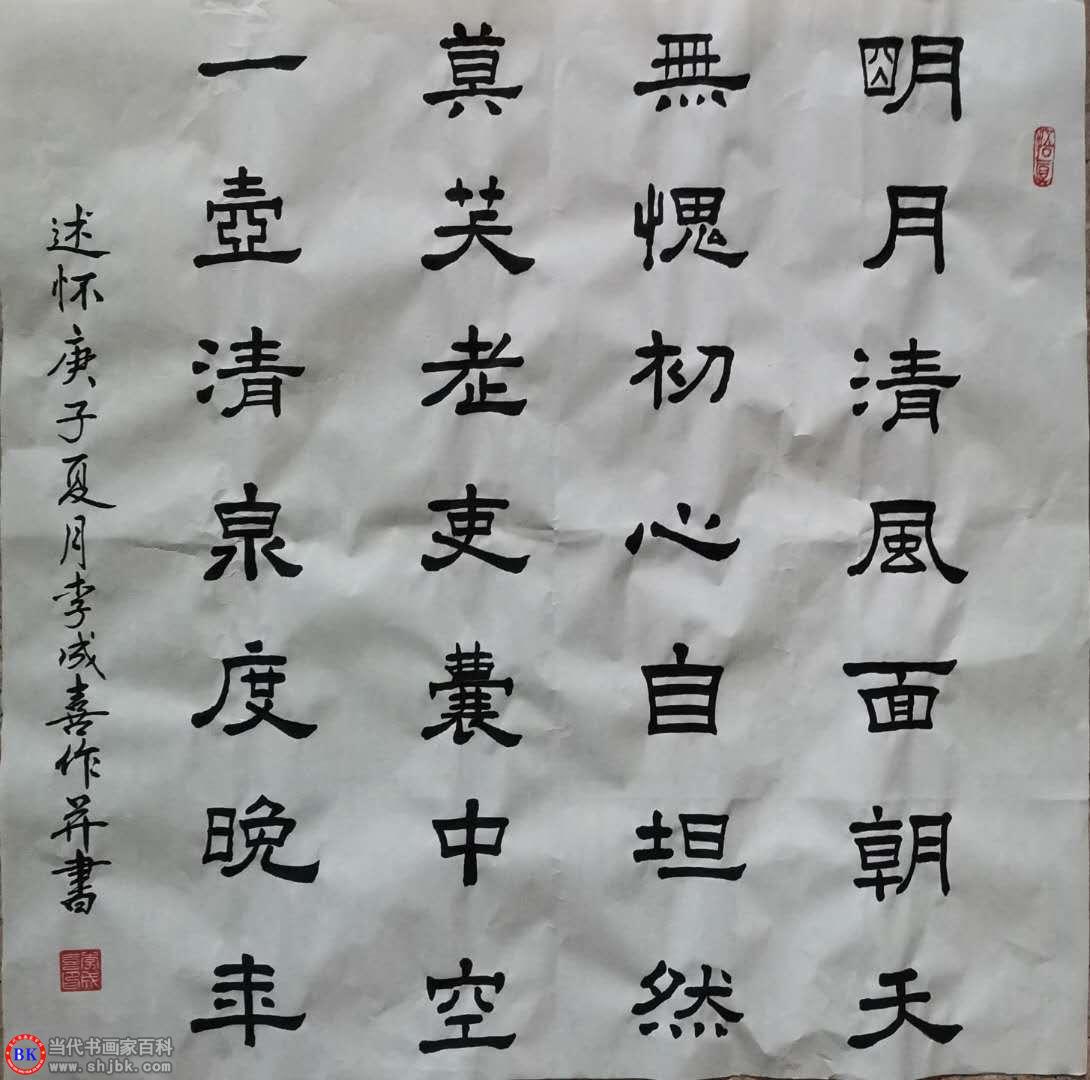 明月清風面朝天
無愧初心自坦然
莫笑老吏囊中空
一壺清泉度晚年
述怀庚子夏月李成喜作并書
BK
当代书画家百科
www.shjbk.com